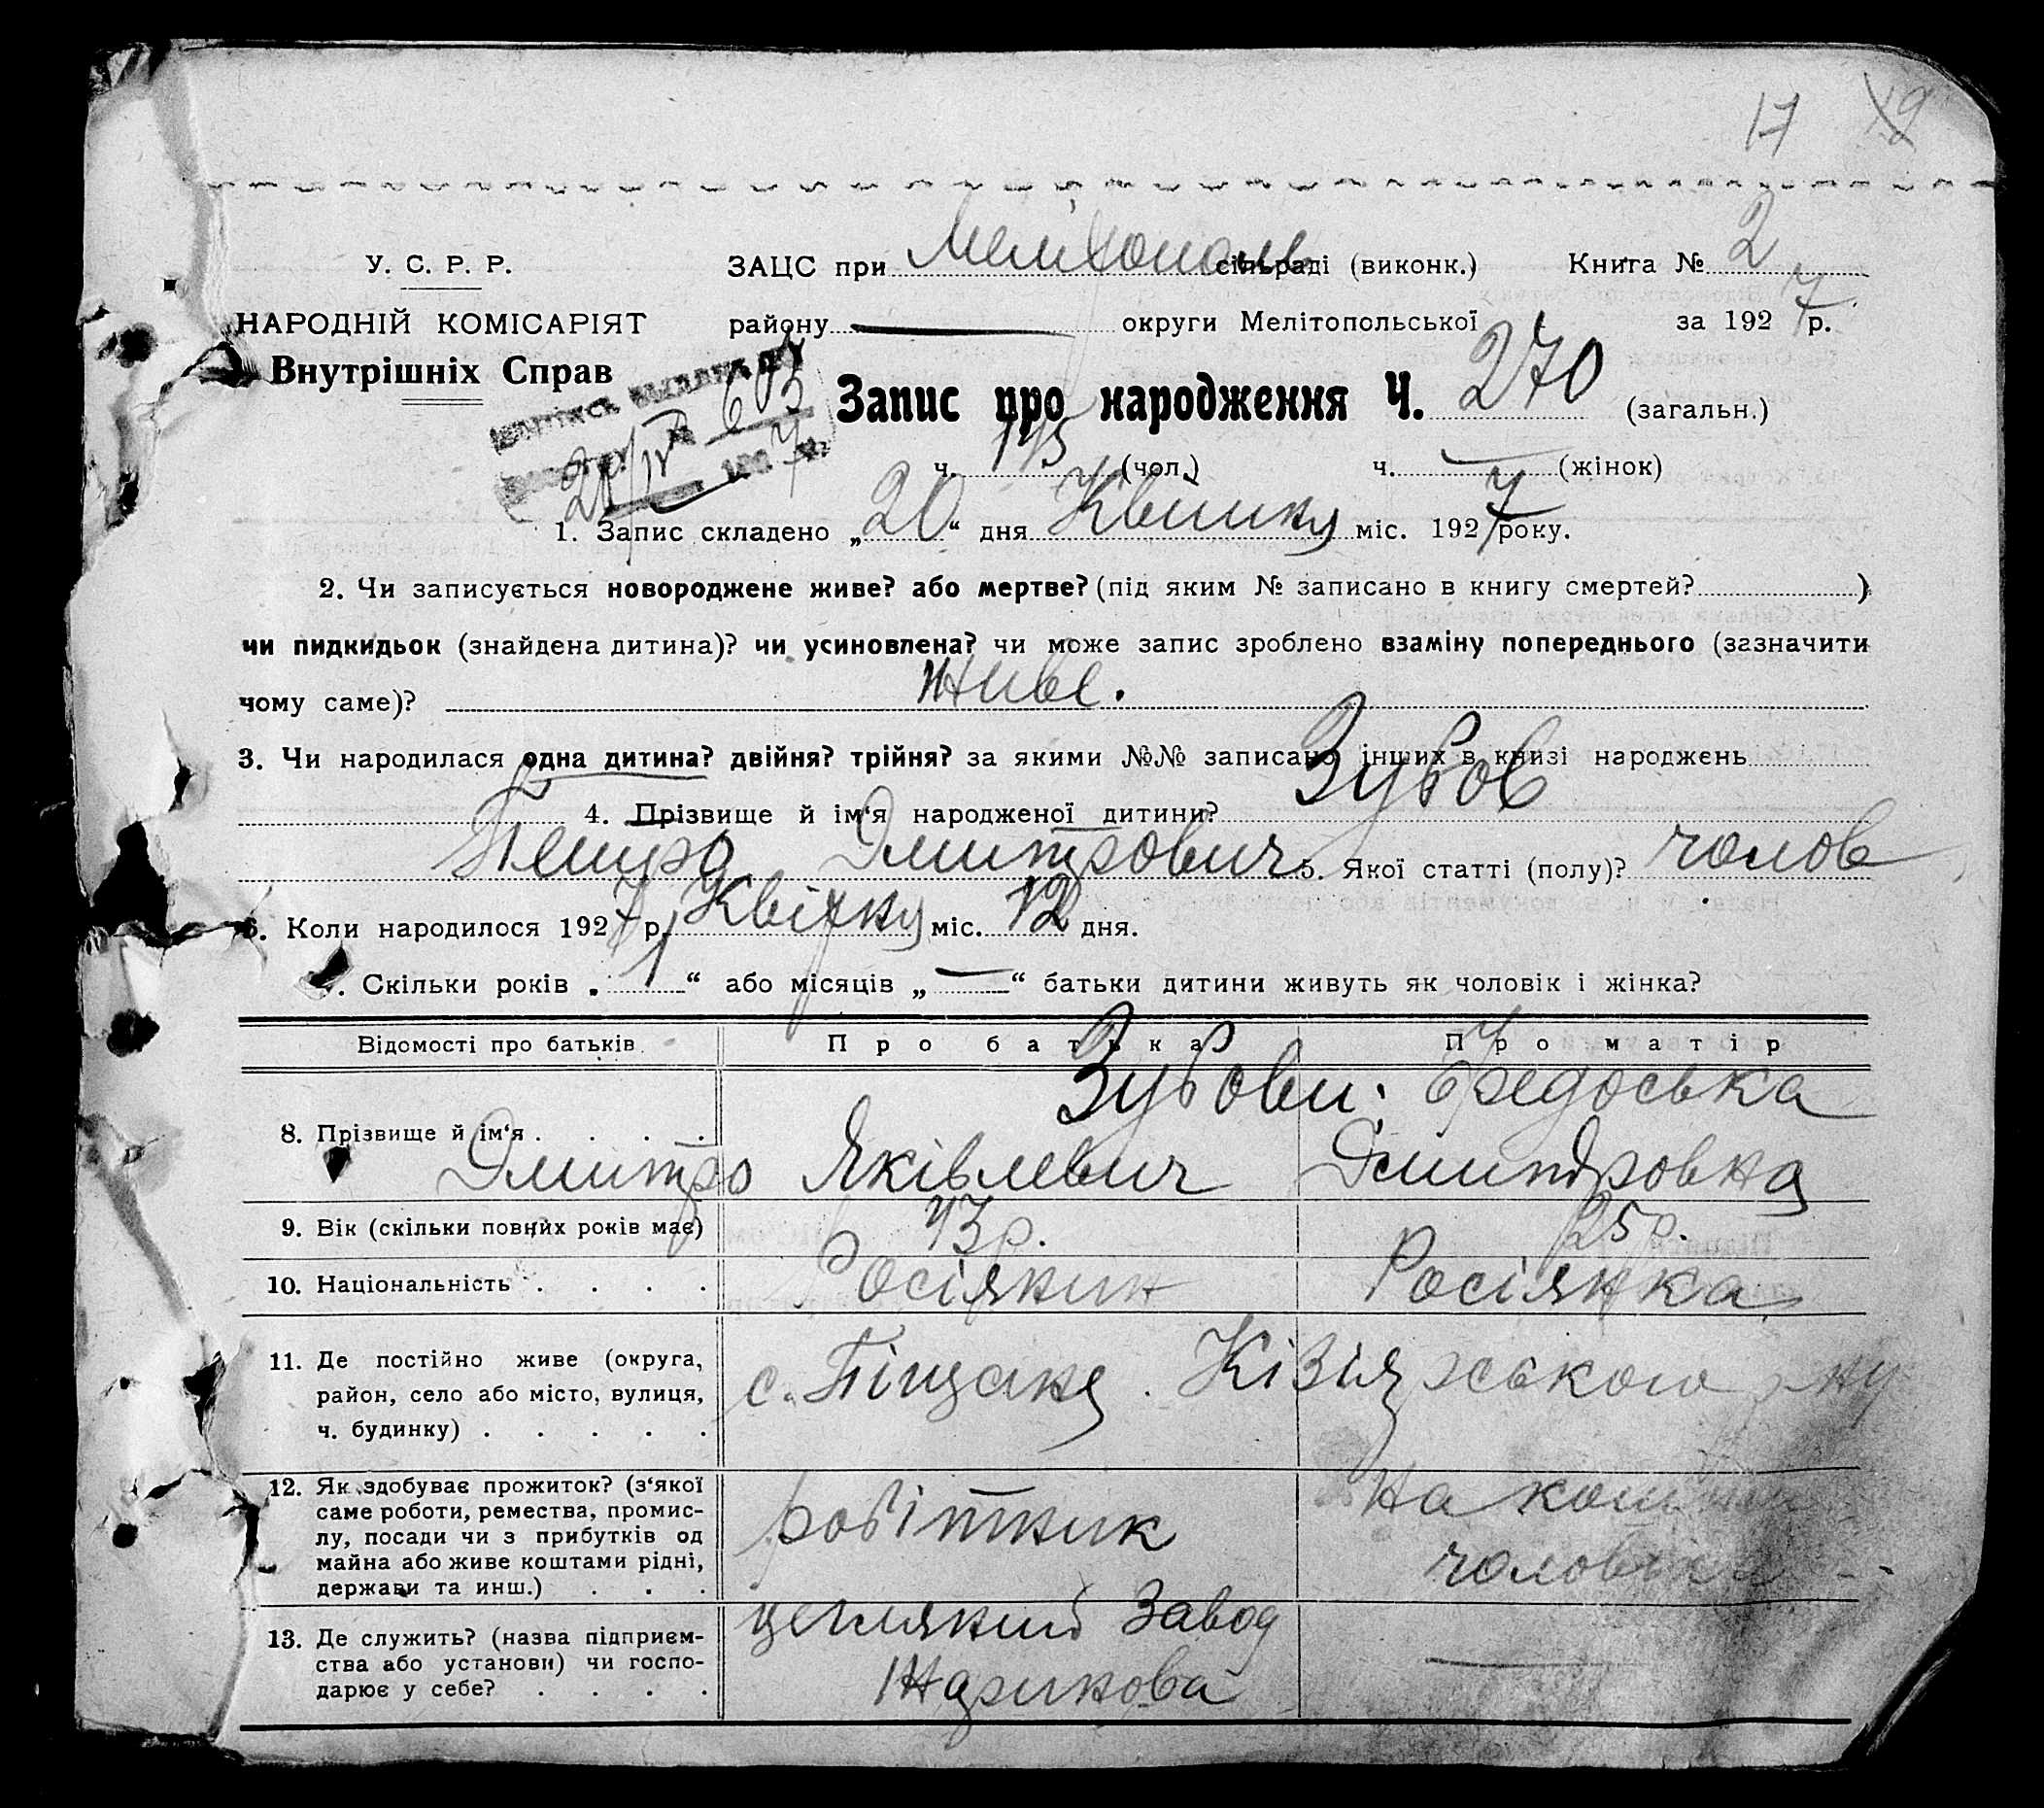 17 19
У. С. Р. Р. ЗАЦС при Мелітополь сільраді (виконк.) Книга № 2
НАРОДНІЙ КОМІСАРІЯТ району округи Мелітопольської за 1927 р.
Внутрішніх Справ
693
Запис про народження Ч. 270 (загальн.)
20/IV 1927
ч. 175 (чол.) ч. — (жінок)
1. Запис складено „20“ дня Квітня міс. 1927 року.
2. Чи записується новороджене живе? або мертве? (під яким № записано в книгу смертей? )
чи пидкидьок (знайдена дитина)? чи усиновлена? чи може запис зроблено взаміну попереднього (зазначити
чому саме)? живе.
3. Чи народилася одна дитина? двійня? трійня? за якими №№ записано інших в книзі народжень
4. Прізвище й ім‘я народженої дитини? Зубов
Петро Дмитрович 5. Якої статті (полу)? чолов
6. Коли народилося 1927 р. Квітня міс. 12 дня.
. Скільки років „1“ або місяців „—“ батьки дитини живуть як чоловік і жінка?
Відомості про батьків Про батька Про матір
8. Прізвище й ім‘я . . . . Зубови: Федоська
Дмитро Яківлевич Дмитровна
9. Вік (скільки повних років має) 43р. 25р.
10. Національність . . . . Росіянин Росіянка
11. Де постійно живе (округа,
район, село або місто, вулиця, с. Піщане. Кізіярського р-ну
ч. будинку) . . . . .
12. Як здобуває прожиток? (з‘якої
саме роботи, ремества, промис-
лу, посади чи з прибутків од робітник На кошти
майна або живе коштами рідні, чоловіка
держави та инш.) . . .
13. Де служить? (назва підприєм- цегляний Завод
ства або установи) чи госпо- —
дарює у себе? . . . . Жарикова